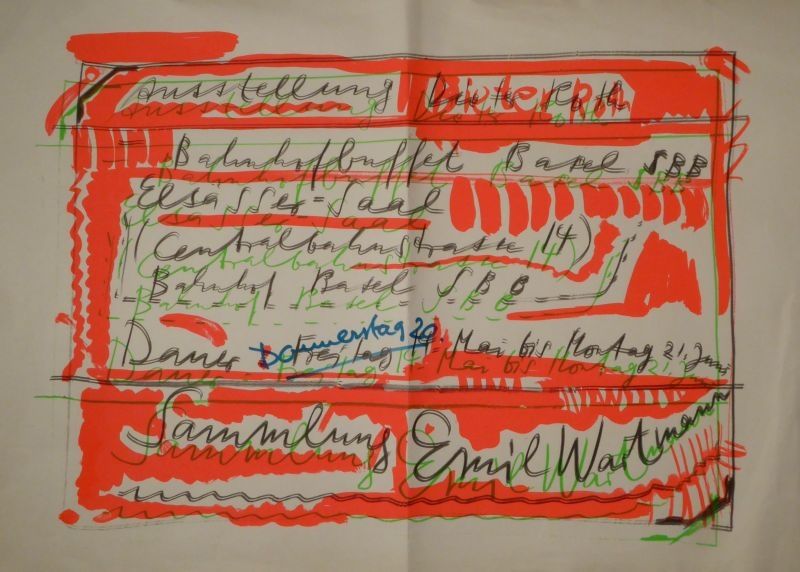 Ausstellung Dieter Roth
= Bahnhofbuffet Basel SBB
Elsässer=Saal
(Centralbahnstrasse 14)
Bahnhof Basel SBB
Dauer Donnerstag 20. Freitag Mai bis Montag 21. Juni
Sammlung Emil Wartmann